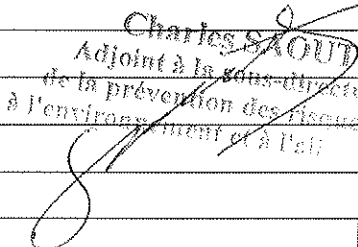 Charles SAOUT
Adjoint à la sous-direct
de la prévention des risque
à l'environnement et à l'ali